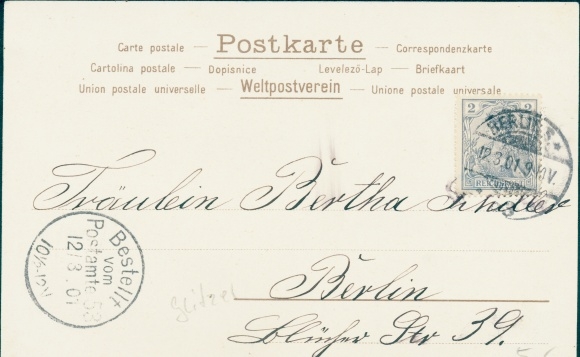 Carte postale — Postkarte — Correspondenzkarte
Cartolina postale — Dopisnice Levelező-Lap — Briefkaart
Union postale universelle — Weltpostverein — Unione postale universale
2 2
BERLIN S
12.3.01.9-10V.
REICHSPOST
Fräulein Bertha Schiller
Bestellt
vom
Postamte 53
12/3.01
Berlin
Blücher Str 39.